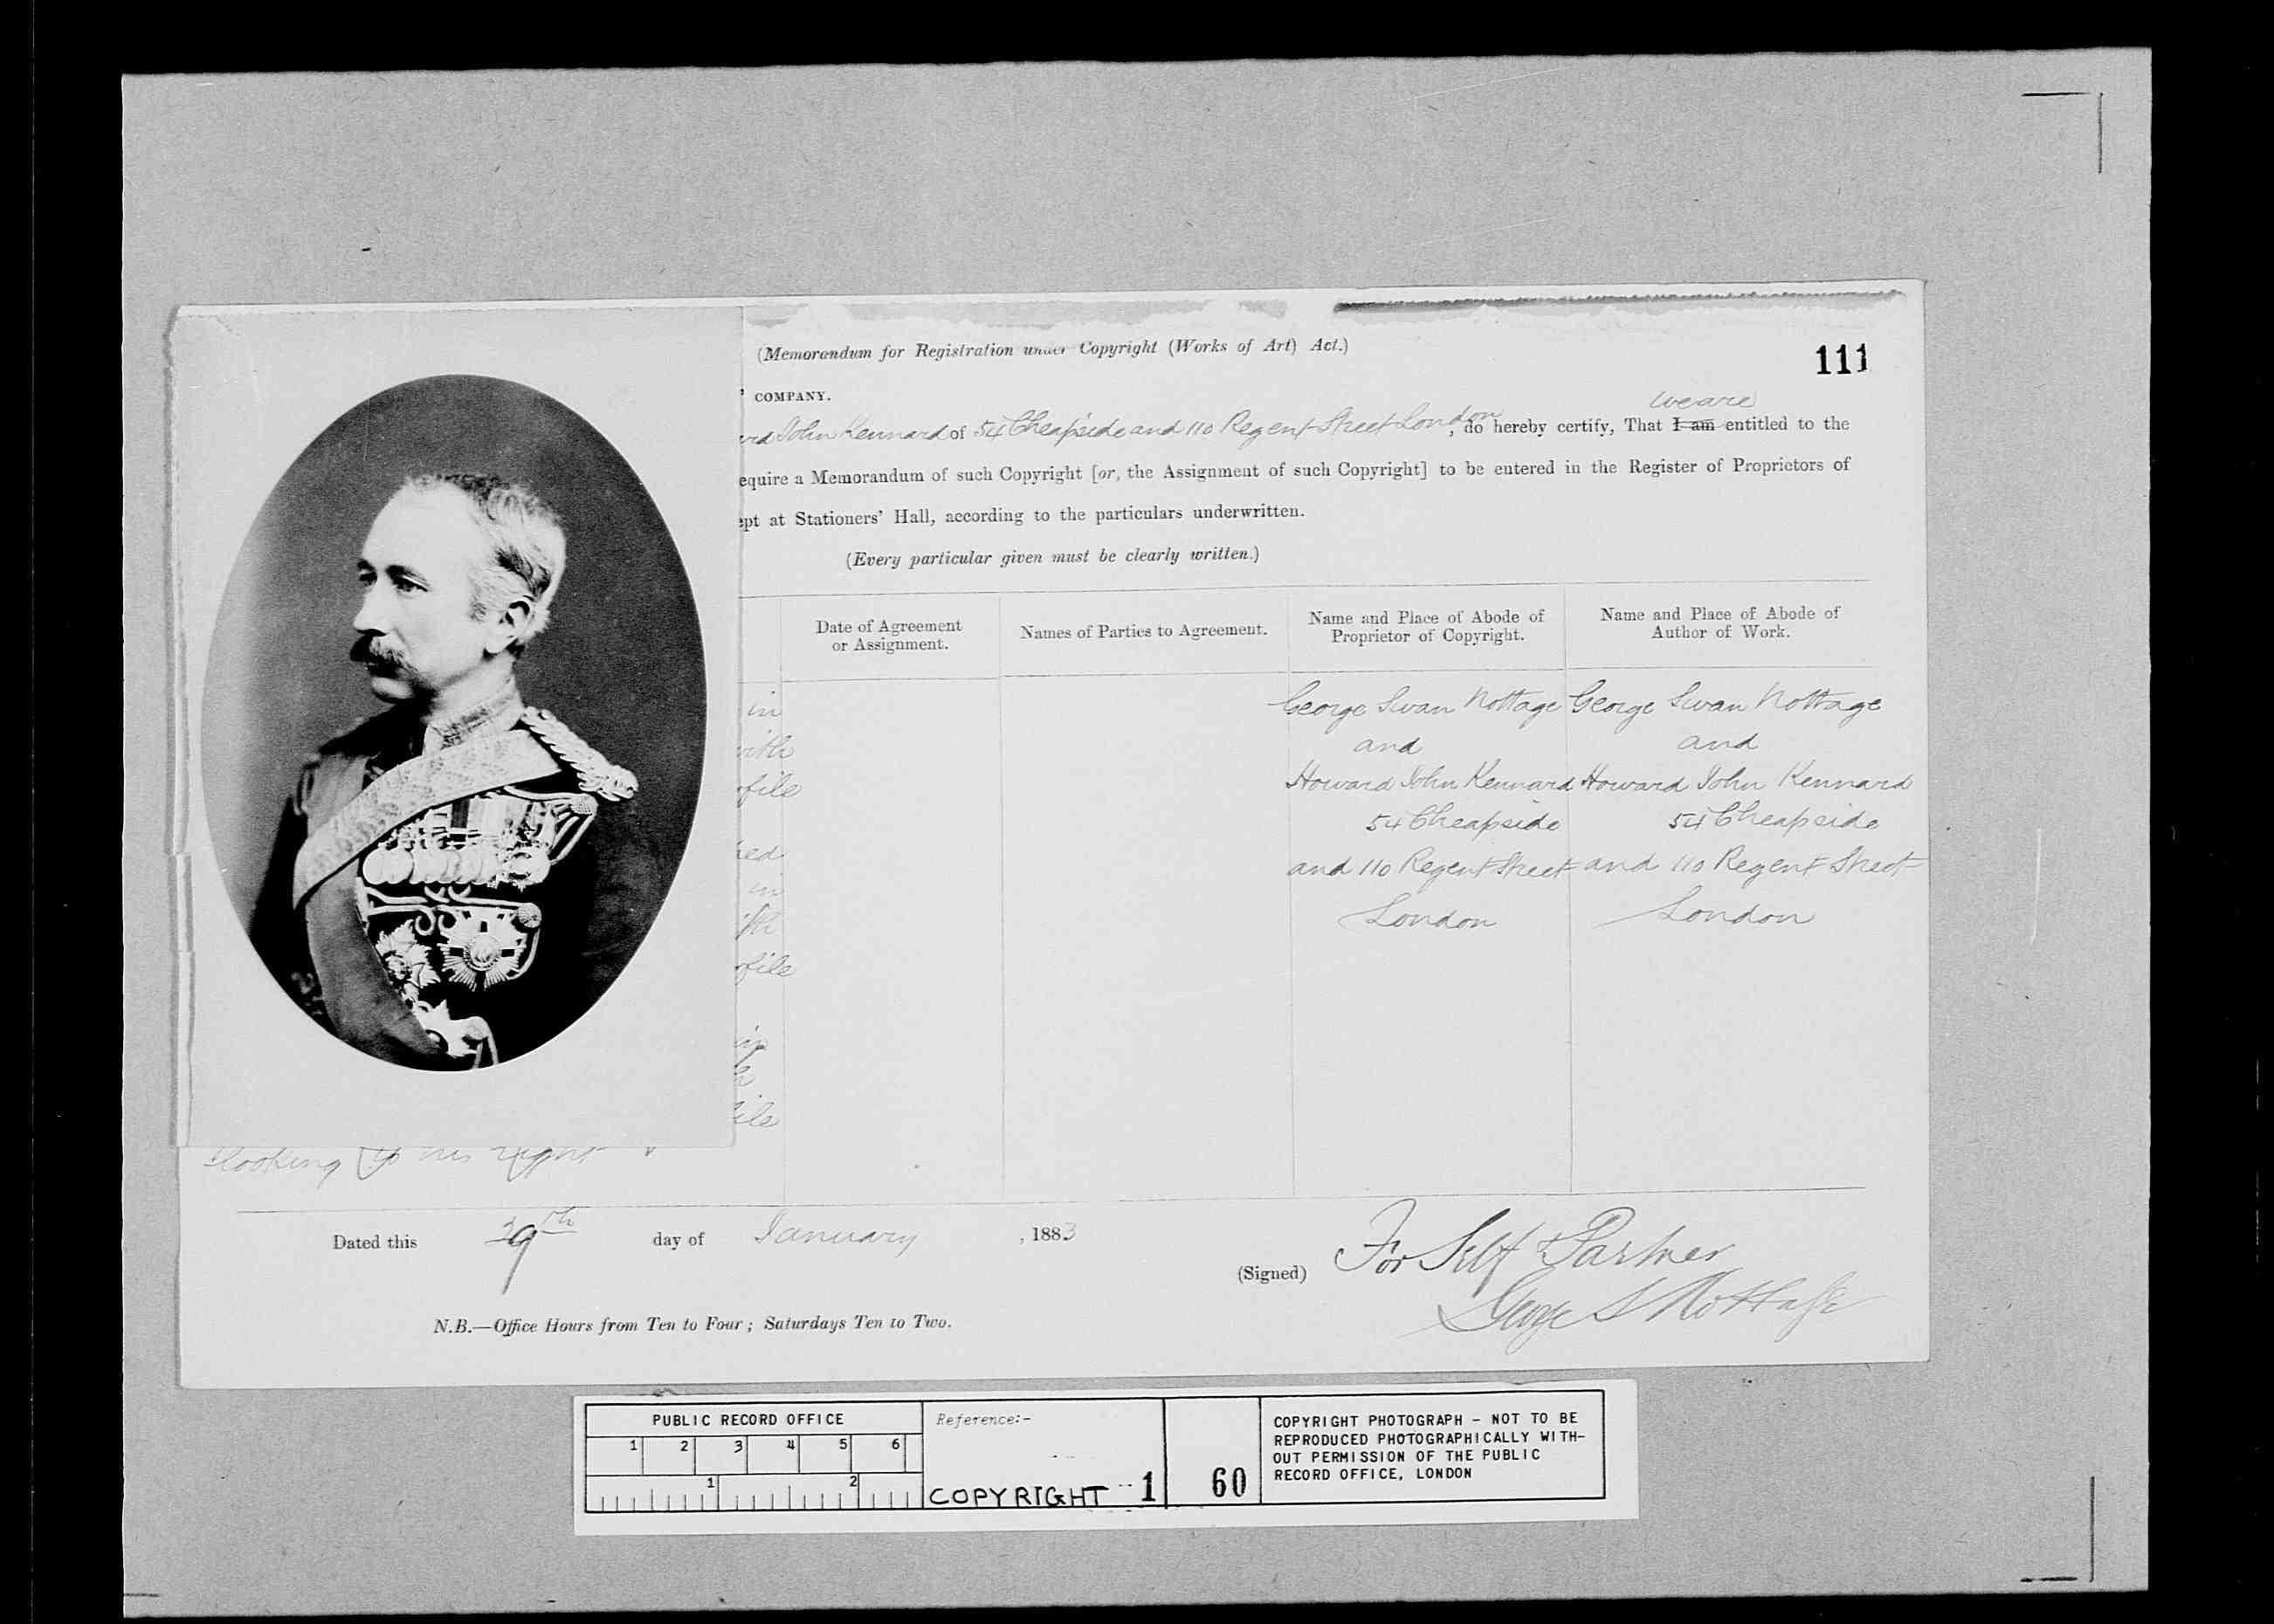 (Memorandum for Registration under Copyright (Works of Art) Act.)
111
' COMPANY.
we are
rd John Kennard of 54 Cheapside and 110 Regent Street London, do hereby certify, That I am entitled to the
equire a Memorandum of such Copyright [or, the Assignment of such Copyright] to be entered in the Register of Proprietors of
ept at Stationers' Hall, according to the particulars underwritten.
(Every particular given must be clearly written.)
Date of Agreement
or Assignment.
Names of Parties to Agreement.
Name and Place of Abode of
Proprietor of Copyright.
Name and Place of Abode of
Author of Work.
in
with
ofile
ed
in
ith
ofile
in
file
George Swan Nottage
and
Howard John Kennard
54 Cheapside
and 110 Regent Street
London
George Swan Nottage
and
Howard John Kennard
54 Cheapside
and 110 Regent Street
London
looking to his right
Dated this 29th day of January, 1883
(Signed) For Self & Partner
George S Nottage
N.B.—Office Hours from Ten to Four; Saturdays Ten to Two.
PUBLIC RECORD OFFICE
1 2 3 4 5 6
1 2
Reference:-
COPYRIGHT 1 60
COPYRIGHT PHOTOGRAPH - NOT TO BE
REPRODUCED PHOTOGRAPHICALLY WITH-
OUT PERMISSION OF THE PUBLIC
RECORD OFFICE, LONDON